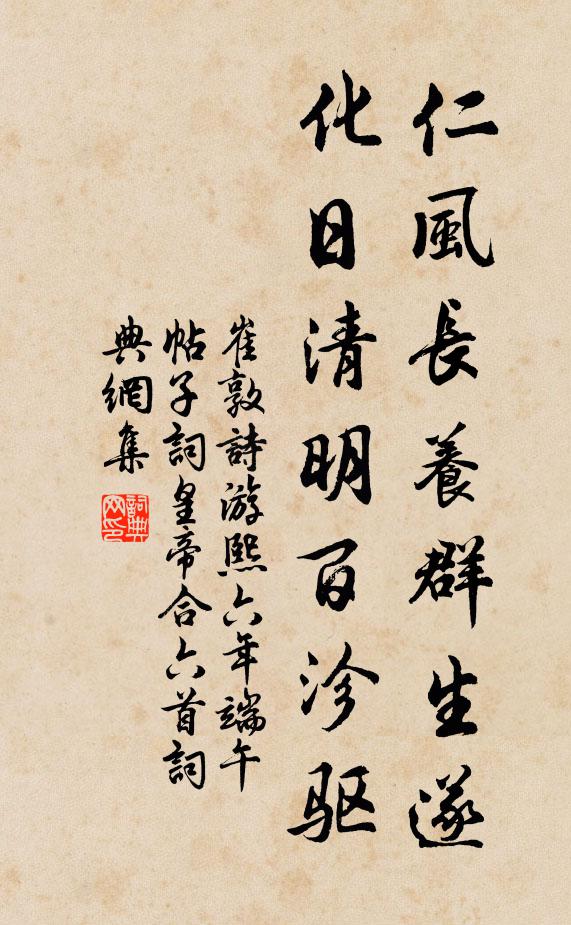 仁風長養群生遂
化日清明百沴驱
崔敦詩游熙六年端午
帖子詞皇帝合六首詞
典網集
詞典网印